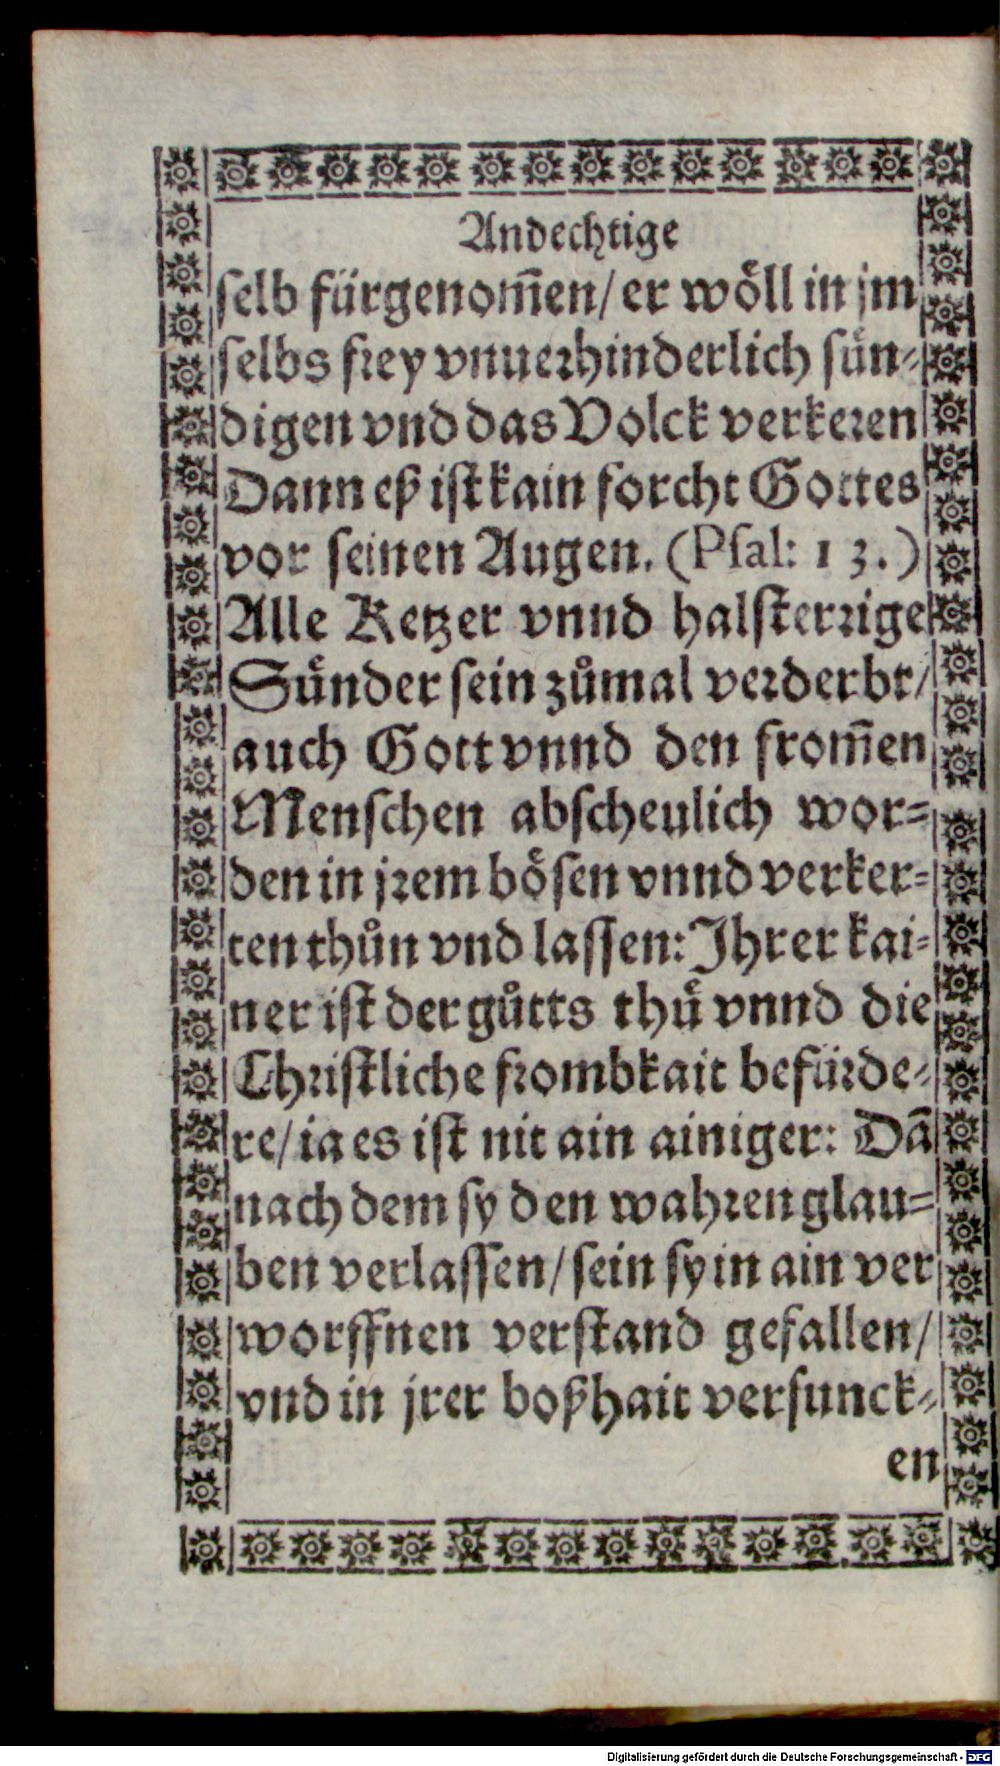 Andechtige
ſelb fürgenom̃en/ er wöll in jm
ſelbs frey vnuerhinderlich sün⸗
digen vnd das Volck verkeren
Dann eß iſt kain forcht Gottes
vor ſeinen Augen. (Pſal: 13.)
Alle Ketzer vnnd halſterrige
Sünder ſein zůmal verderbt/
auch Gott vnnd den from̃en
Menſchen abſcheulich wor⸗
den in jrem böſen vnnd verker⸗
ten thůn vnd laſſen: Ihrer kai⸗
ner iſt der gůtts thů vnnd die
Chriſtliche frombkait befürde⸗
re/ ia es iſt nit ain ainiger: Dañ
nach dem ſy den wahren glau⸗
ben verlaſſen/ ſein ſy in ain ver
worffnen verſtand gefallen/
vnd in jrer boßhait verſunck⸗
en
Digitalisierung gefördert durch die Deutsche Forschungsgemeinschaft - DFG